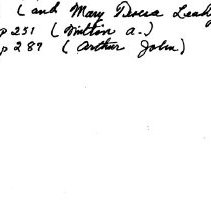 (and Mary Teresa Leahy
p 251 (Milton A.)
p 289 (Arthur John)